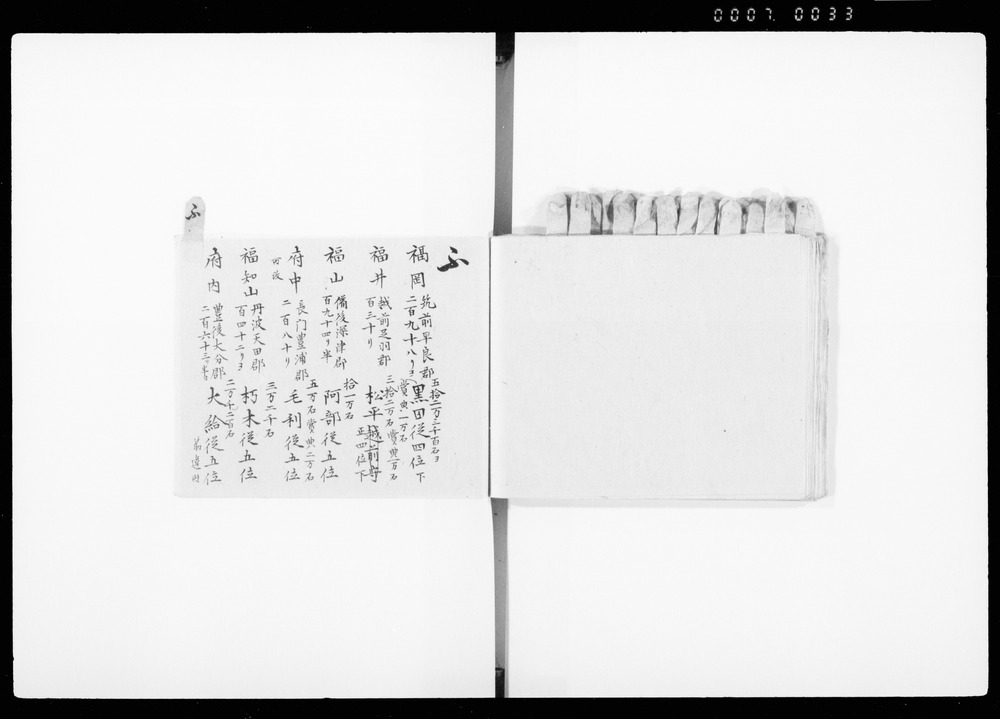 0007 0033
ふ
ふ
福岡
筑前早良郡
二百九十八り
五拾二万三千百石ヨ
賞典一万石
黒田従四位下
福井
越前足羽郡
百三十り
三拾二万石賞典一万石
松平越前守
正四位下
福山
備後深津郡
百九十四り半
拾一万石
阿部従五位
府中
長門豊浦郡
二百八十り
五万石賞典二万石
毛利従五位
福知山
丹波天田郡
百四十二りヨ
三万二千石
朽木従五位
府内
豊後大分郡
二百六十三り
二万千二百石
大給従五位